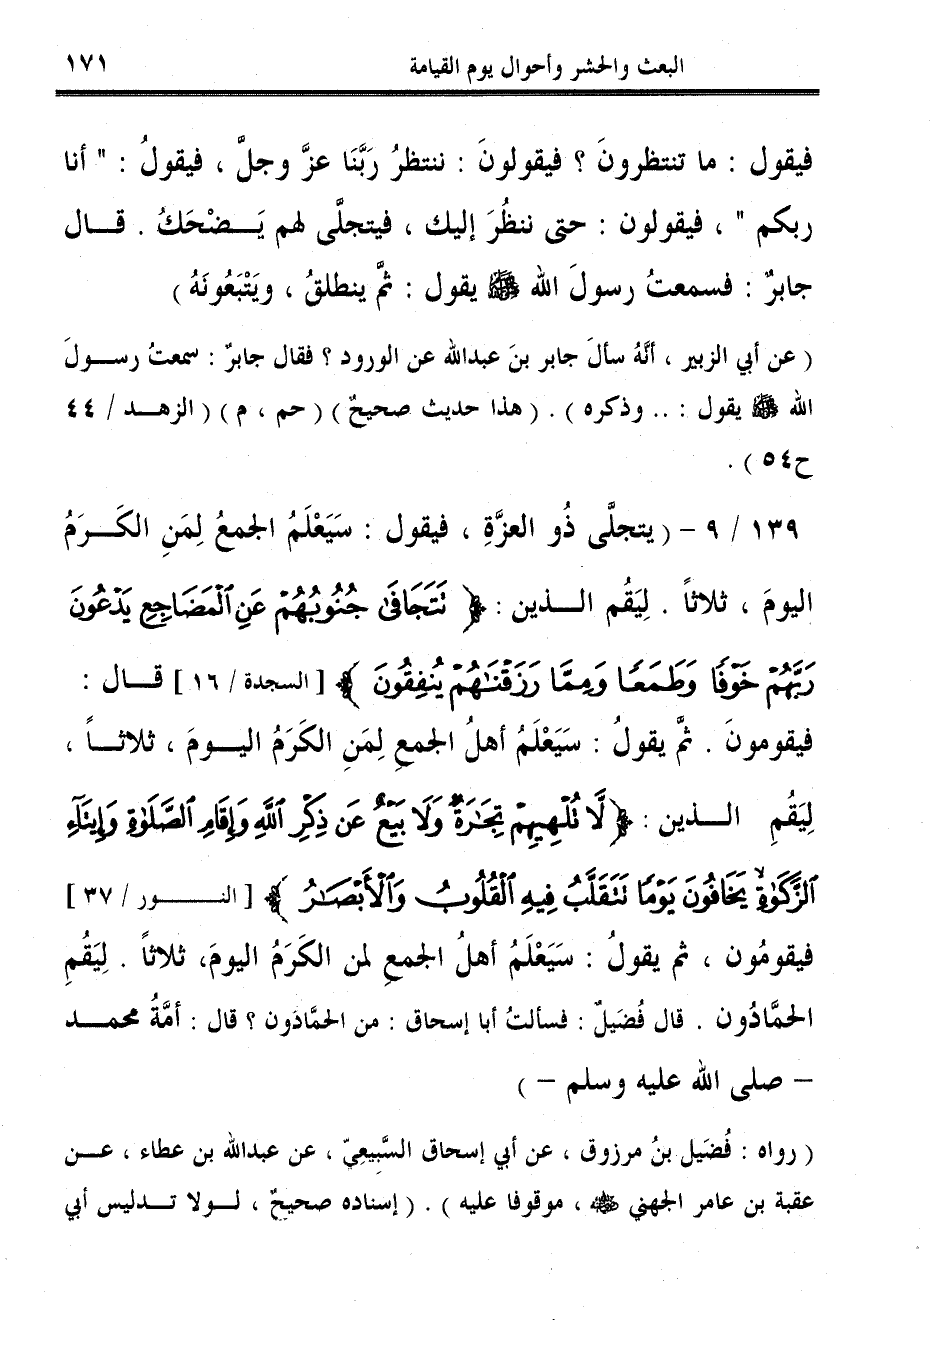 البعث والحشر وأحوال يوم القيامة ١٧١
فيقول : ما تنتظرونَ ؟ فيقولونَ : ننتظرُ رَبَّنَا عزَّ وجلَّ ، فيقولُ : " أنا
ربكم " ، فيقولون : حتى ننظُرَ إليك ، فيتجلَّى لهم يَـــضْحَكُ . قـــال
جابرٌ : فسمعتُ رسولَ الله ﷺ يقول : ثمَّ ينطلقُ ، ويَتْبَعُونَهُ )
( عن أبي الزبير ، أنَّهُ سألَ جابر بنَ عبدالله عن الورود ؟ فقال جابرٌ : سمعتُ رســولَ
الله ﷺ يقول : .. وذكره ) . ( هذا حديث صحيحٌ ) ( حم ، م ) ( الزهــد / ٤٤
ح٥٤ ) .
١٣٩ / ٩ – ( يتجلَّى ذُو العزَّةِ ، فيقول : سَيَعْلَمُ الجمعُ لِمَنِ الكَــرَمُ
اليومَ ، ثلاثاً . لِيَقُم الــذين : ﴿ نَتَجَافَىٰ جُنُوبُهُمْ عَنِ ٱلْمَضَاجِعِ يَدْعُونَ
رَبَّهُمْ خَوْفًا وَطَمَعًا وَمِمَّا رَزَقْنَـٰهُمْ يُنفِقُونَ ﴾ [ السجدة / ١٦ ] قــال :
فيقومونَ . ثمَّ يقولُ : سَيَعْلَمُ أهلُ الجمعِ لِمَنِ الكَرَمُ اليــومَ ، ثلاثــاً ،
لِيَقُمِ الـــذين : ﴿ لَّا تُلْهِيهِمْ تِجَـٰرَةٌ وَلَا بَيْعٌ عَن ذِكْرِ ٱللَّهِ وَإِقَامِ ٱلصَّلَوٰةِ وَإِيتَآءِ
ٱلزَّكَوٰةِ ۙ يَخَافُونَ يَوْمًا تَتَقَلَّبُ فِيهِ ٱلْقُلُوبُ وَٱلْأَبْصَـٰرُ ﴾ [ النـــــور / ٣٧ ]
فيقومُون ، ثم يقولُ : سَيَعْلَمُ أهلُ الجمعِ لمن الكَرَمُ اليومَ، ثلاثاً . لِيَقُمِ
الحمَّادُون . قال فُضَيلٌ : فسألتُ أبا إسحاق : من الحمَّادون ؟ قال : أمَّةُ محمــد
– صلى الله عليه وسلم – )
( رواه : فُضَيل بنُ مرزوق ، عن أبي إسحاق السَّبيعيّ ، عن عبدالله بن عطاء ، عــن
عقبة بن عامر الجهني ﷺ ، موقوفا عليه ) . ( إسناده صحيحٌ ، لــولا تــدليس أبي